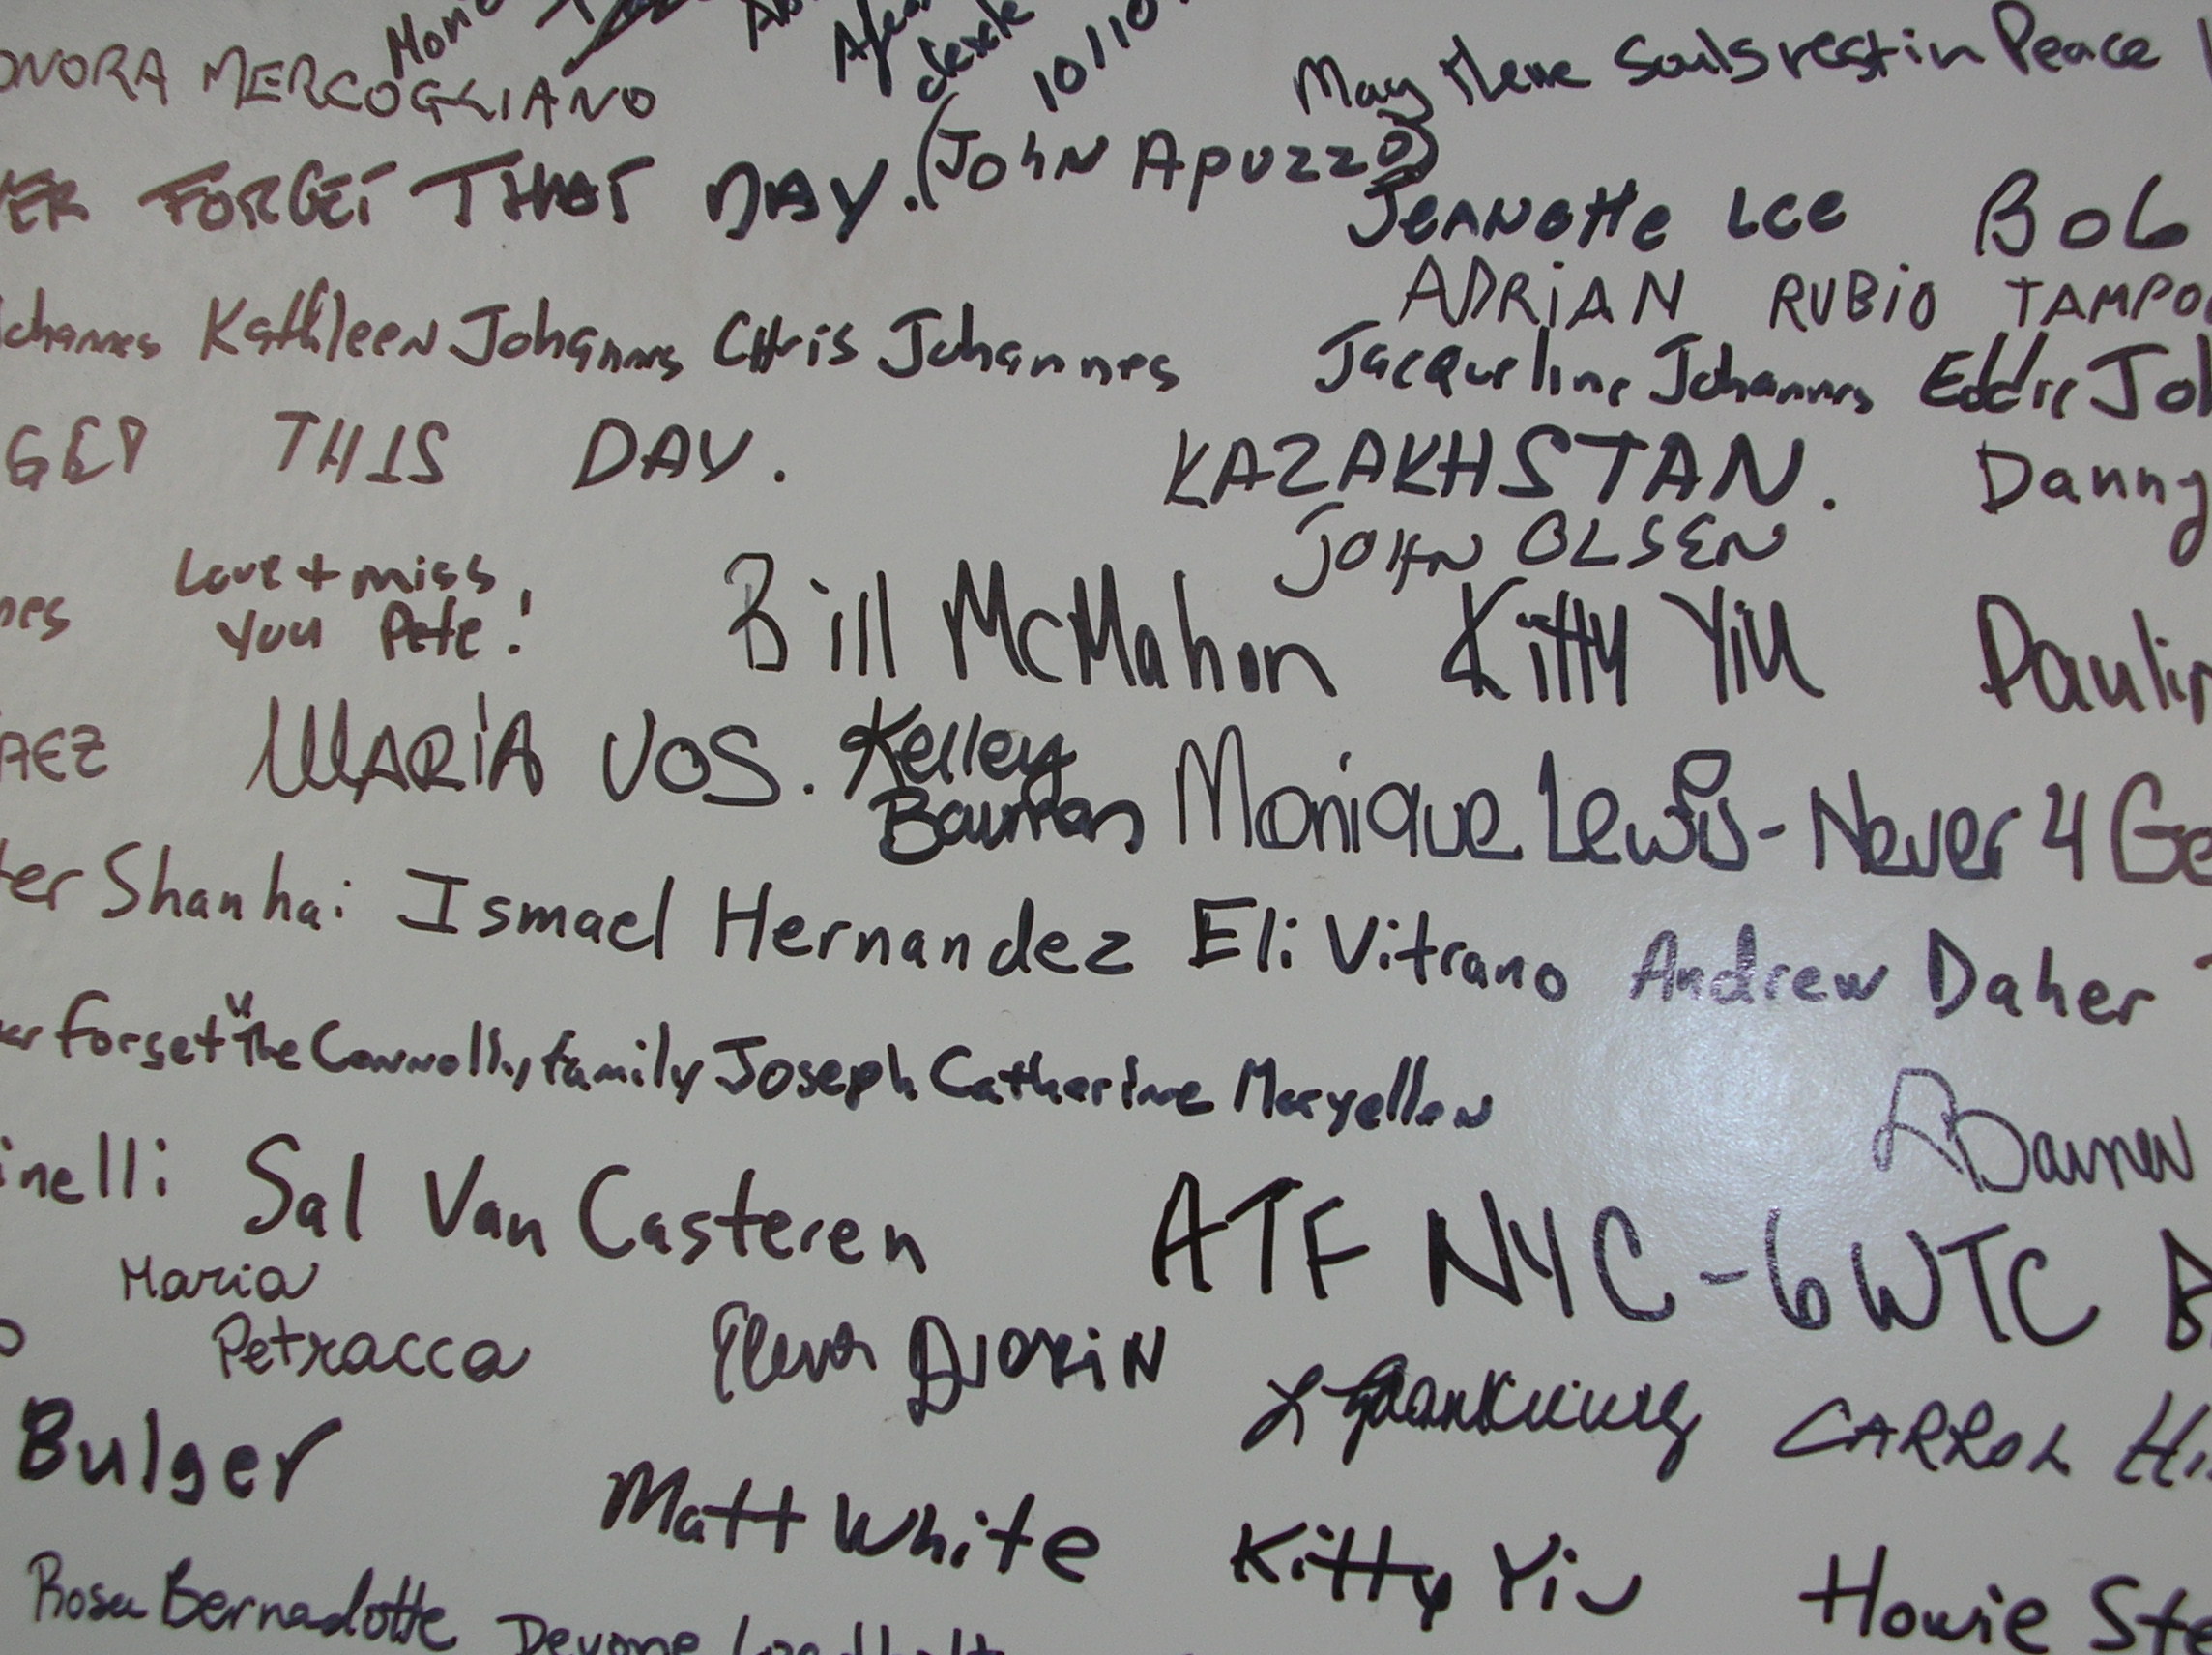 10/10
ONORA MERCOGLIANO
May these souls rest in Peace
VER FORGET THAT DAY. (JOHN APUZZO)
JEANETTE LEE Bob
ADRIAN RUBIO TAMPO
ohannes Kathleen Johannes Chris Johannes Jacqueline Johannes Eddie Joh
GET THIS DAY. KAZAKHSTAN. Danny
JOHN OLSEN
nes Love + miss
you Pete!
Bill McMahon Kitty Yiu Paulin
AEZ MARIA VOS. Kelley
Bauman
Monique Lewis - Never 4 Ge
ter Shanhai Ismael Hernandez Eli Vitrano Andrew Daher
er Forget" The Connolly family Joseph Catherine Maryellen
inelli Sal Van Casteren ATF NYC - 6 WTC B
Maria
Petracca
Bulger
CARROL Hi
Matt White Kitty Yiu Howie Ste
Rosa Bernadotte